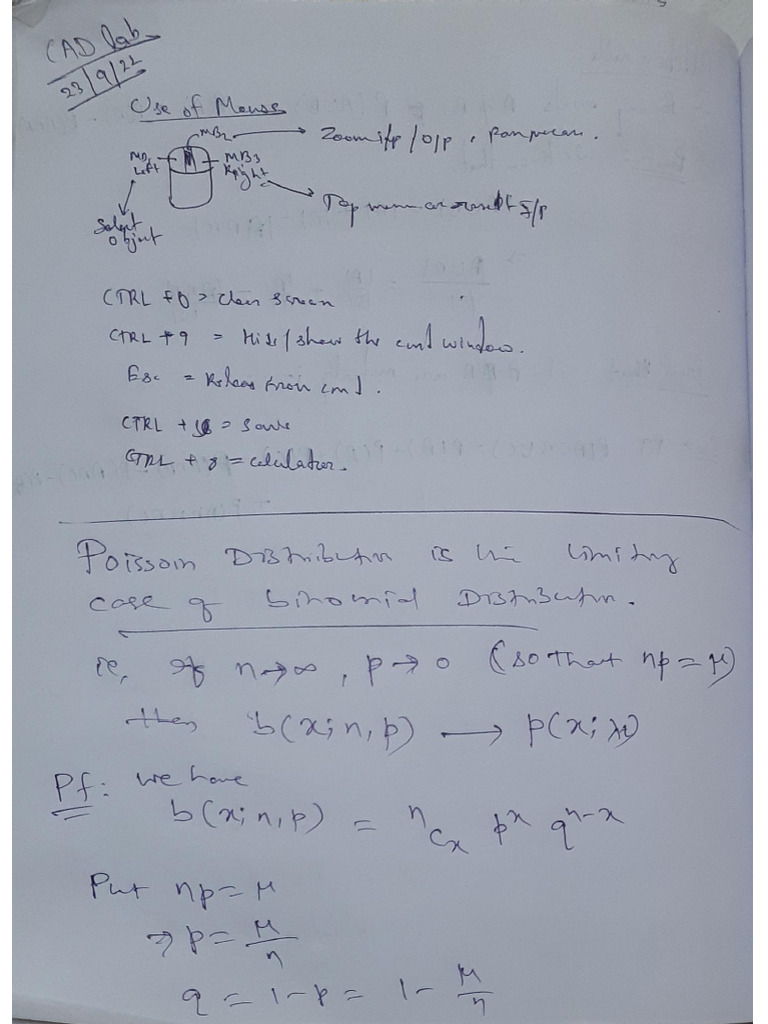 CAD lab
23/9/22
Use of Mouse
MB2 → Zoom i/p / o/p,
MB1 Left
MB3 Right
→ I/p
Select
Object
CTRL + 0 = clean screen
CTRL + 9 = Hide / show the cmd window.
Esc = Release from cmd.
CTRL + S = save
CTRL + 8 = calculator.
Poisson Distribution is the limiting
case of binomial Distribution.
ie, If n→∞, p→0 (so that np = μ)
then b(x; n, p) → p(x; μ)
Pf: we have
b(x; n, p) = ⁿCₓ pˣ qⁿ⁻ˣ
Put np = μ
⇒ p = μ/n
q = 1 - p = 1 - μ/n